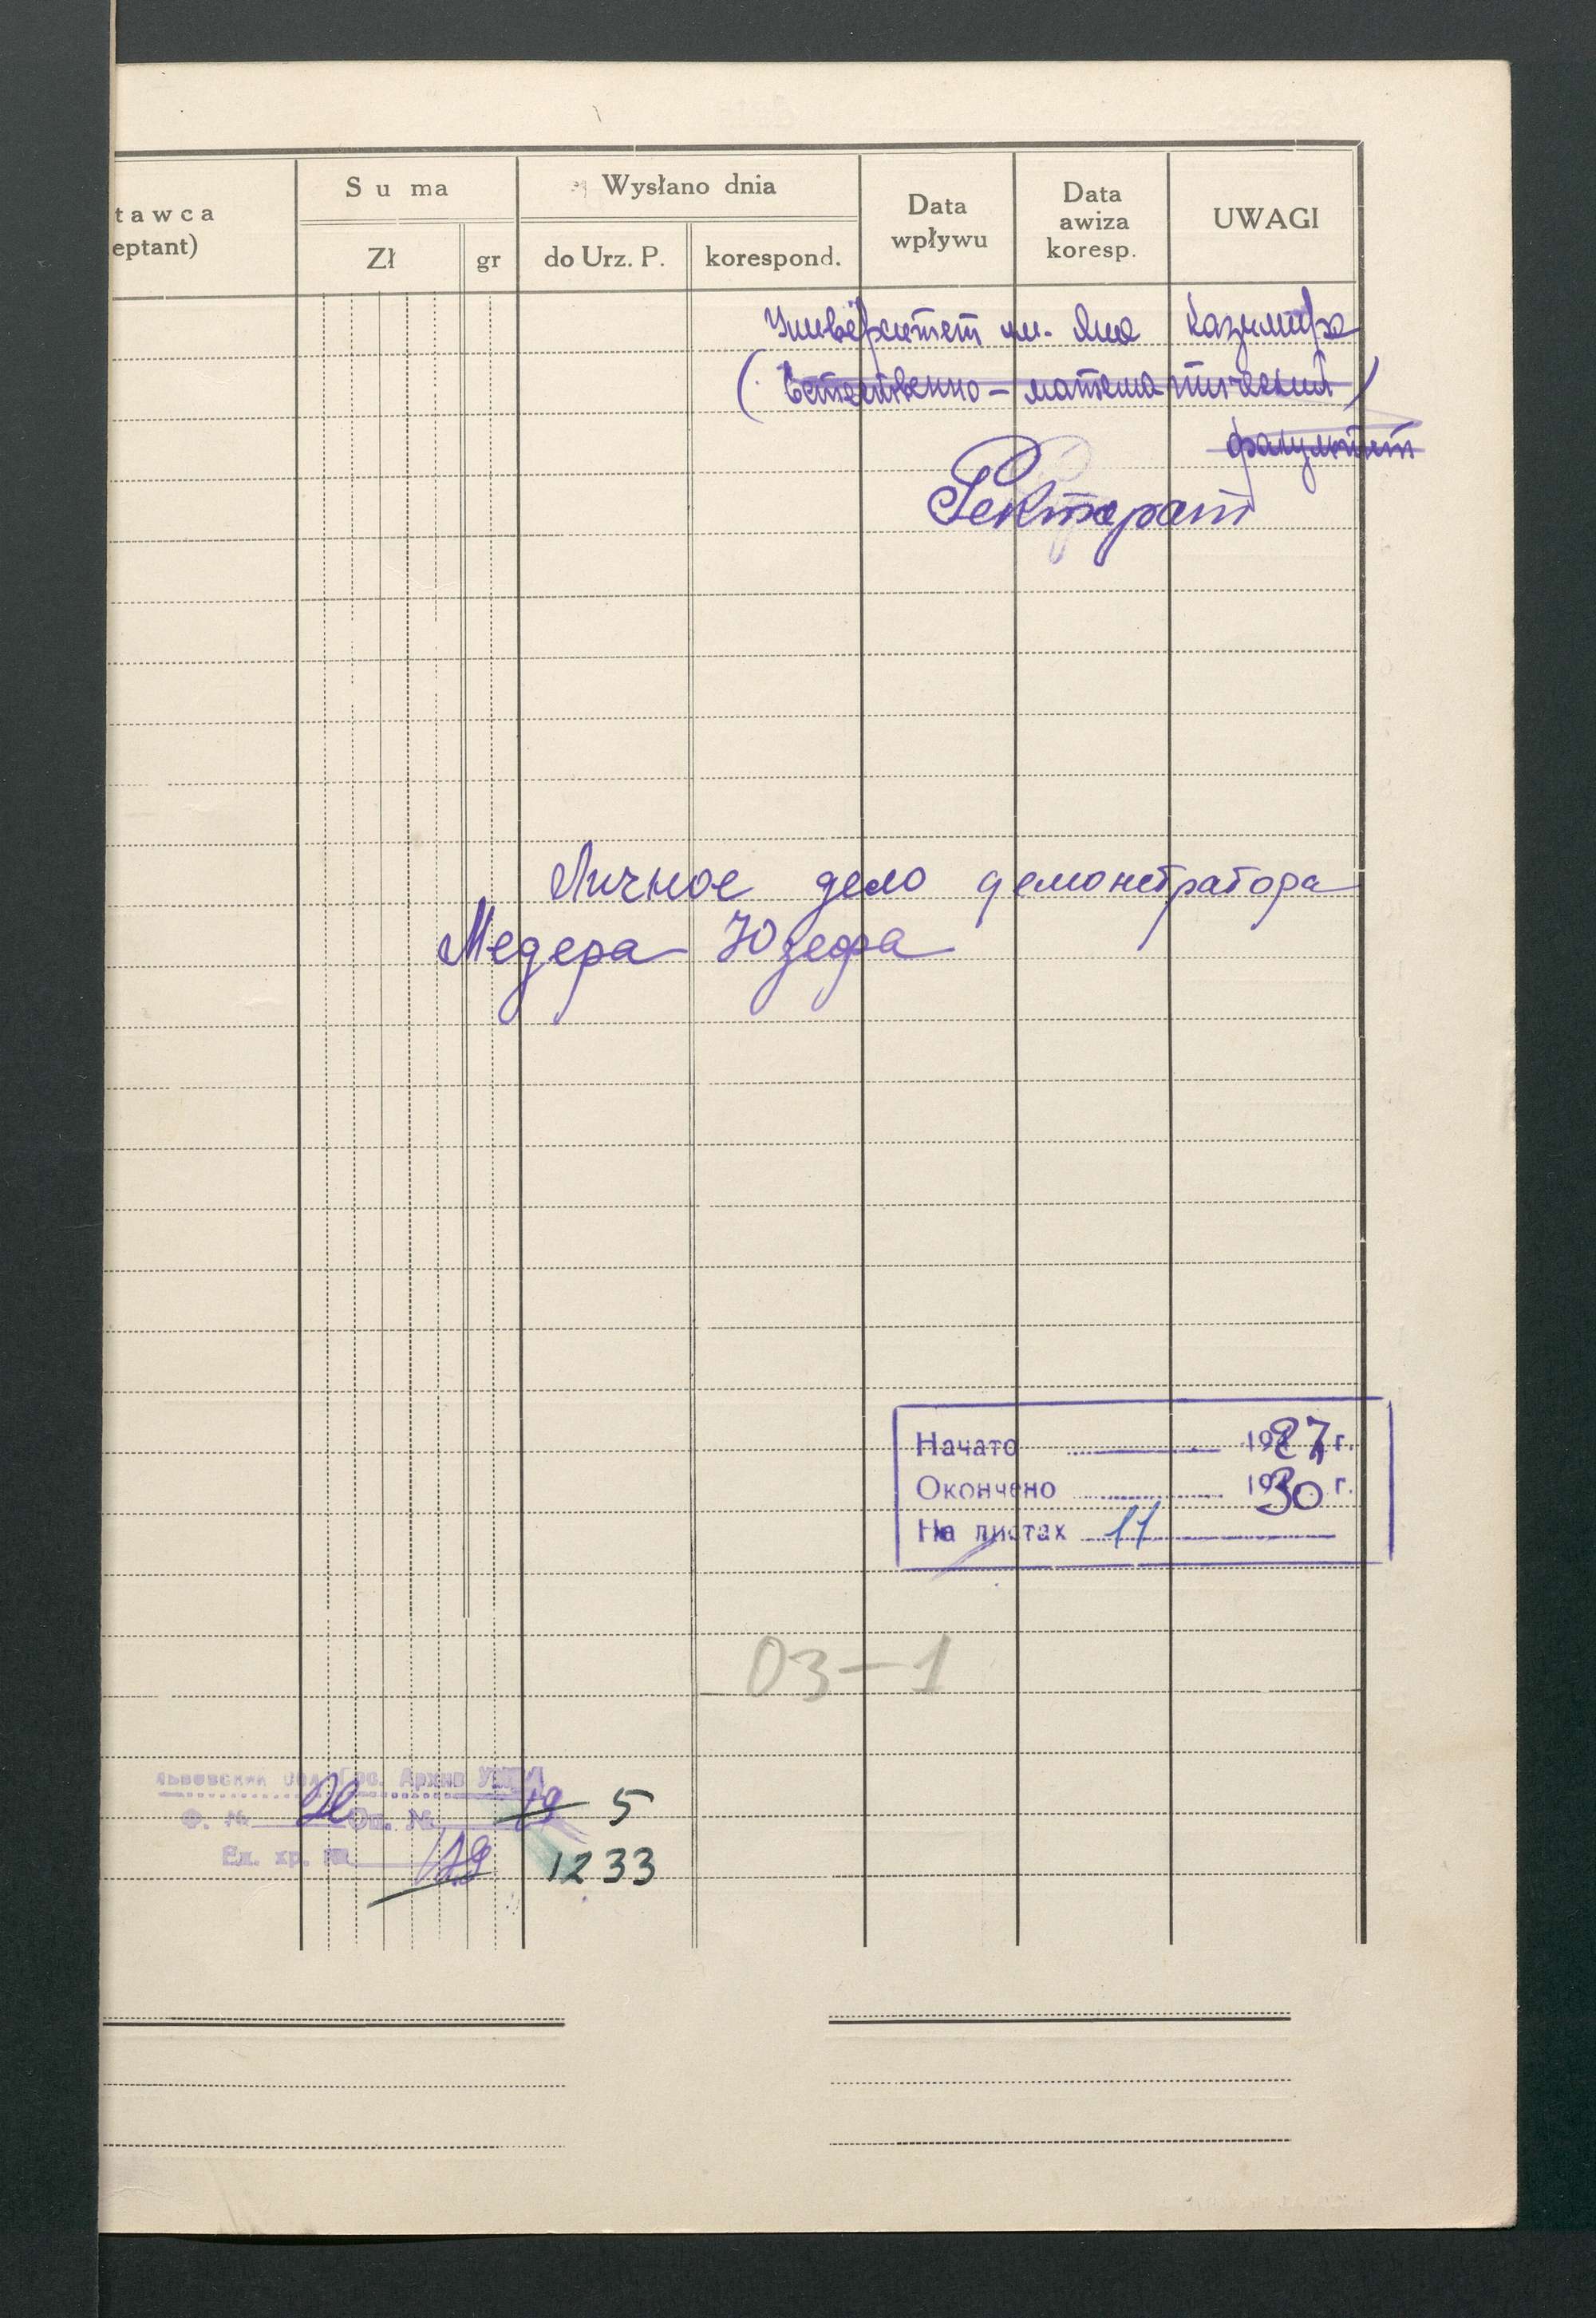 tawca
eptant)
Suma
Zł
gr
Wysłano dnia
do Urz. P.
korespond.
Data
wpływu
Data
awiza
koresp.
UWAGI
Университет им. Яна Казимира
(Естественно-математический)
факультет
Ректорат
Личное дело демонстратора
Медера Юзефа
Начато 1927 г.
Окончено 1930 г.
На листах 11
03-1
Львовский Обл. Гос. Архив
Ф. № 26 Оп. № 19 5
Ед. хр. № 1233